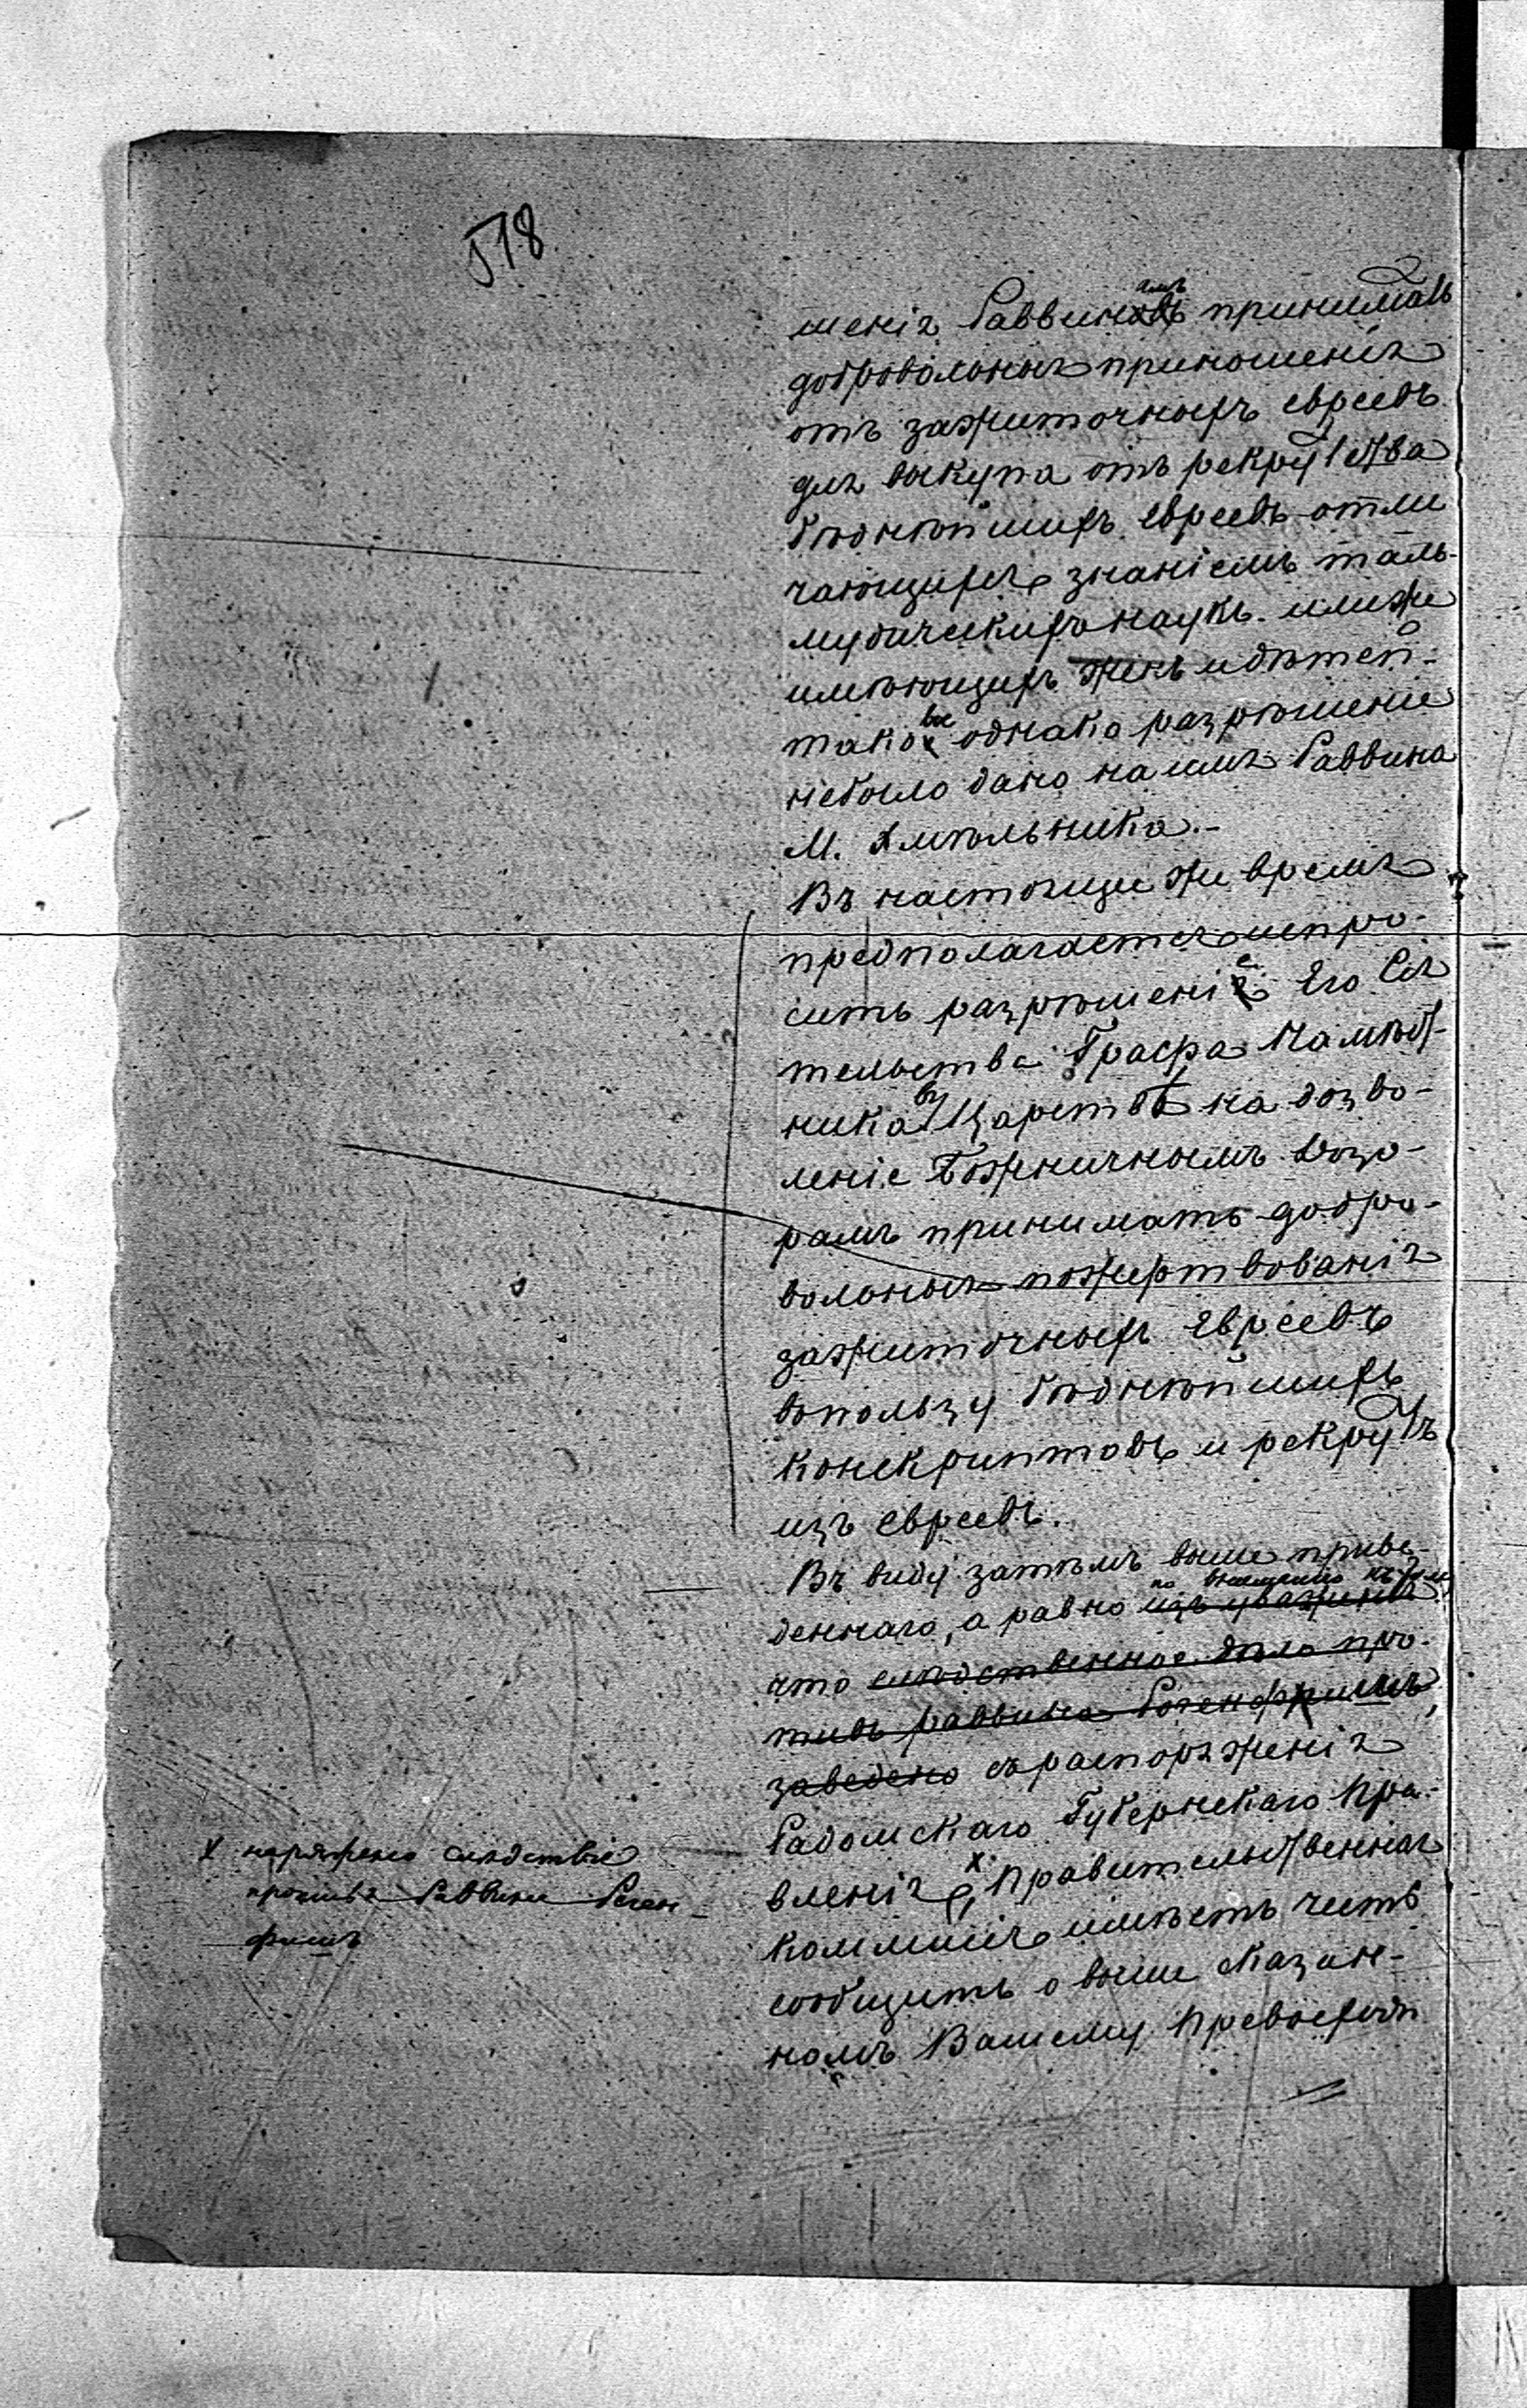 518
шенія Раввинамъ принимать
добровольныя приношенія
отъ зажиточныхъ евреевъ
для выкупа отъ рекрутства
бѣднѣйшихъ евреевъ отли
чающихся знаніемъ таль-
мудическихъ наукъ. или же
имѣющихъ женъ и дѣтей -
таковое однако разрѣшеніе
небыло дано на имя Раввина
М. Хмѣльника. -
Въ настоящее же время
предполагается испро-
сить разрѣшеніе Его Сія
тельства Графа Намѣст-
ника въ Царствѣ на дозво-
леніе Божничнымъ Дозо-
рамъ принимать добро-
вольныя пожертвованія
зажиточныхъ Евреевъ
въ пользу бѣднѣйшихъ
конскриптовъ и рекрутъ
изъ евреевъ.
Въ виду затѣмъ выше приве-
деннаго, а равно по вниманію къ тому
что слѣдственное дѣло про-
тивъ раввина Рогенфишъ,
заведено съ распоряженія
Радомскаго Губернскаго Пра-
вленія х, Правительственная
Коммисія имѣетъ честь
сообщить о выше сказан-
номъ Вашему Превосходи
х наряжено слѣдствіе
противъ Раввина Роген-
фишъ